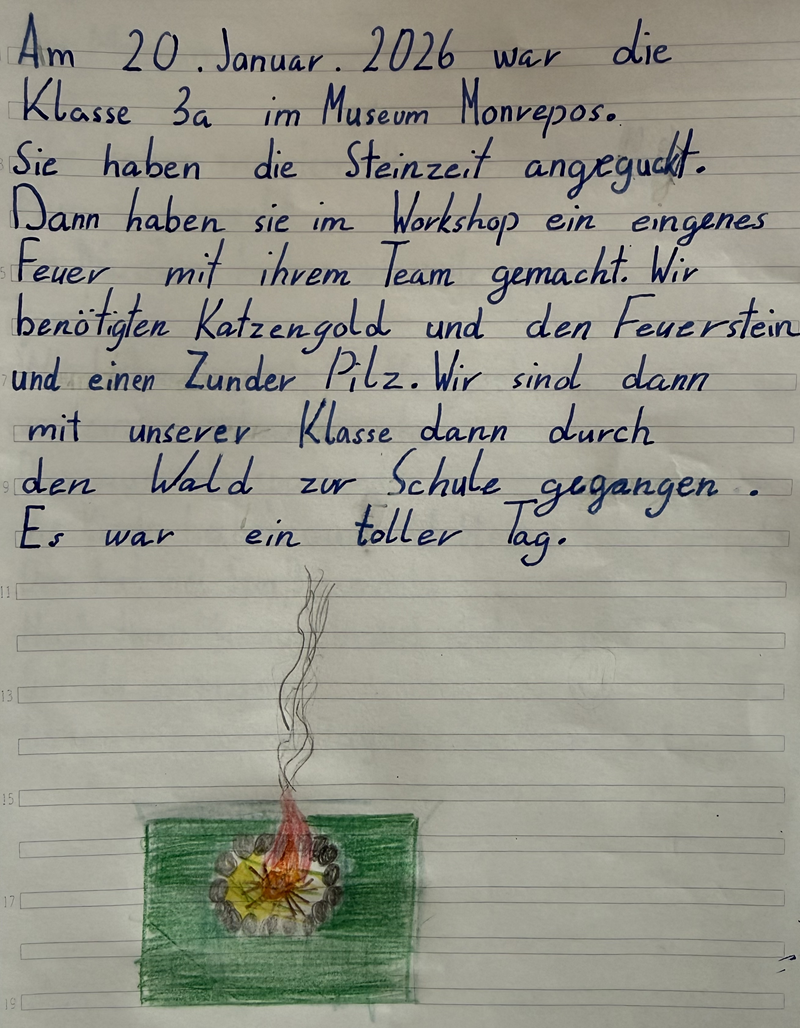 Am 20. Januar. 2026 war die
Klasse 3a im Museum Monrepos.
Sie haben die Steinzeit angeguckt.
Dann haben sie im Workshop ein eingenes
Feuer mit ihrem Team gemacht. Wir
benötigten Katzengold und den Feuerstein
und einen Zunder Pilz. Wir sind dann
mit unserer Klasse dann durch
den Wald zur Schule gegangen.
Es war ein toller Tag.
11
13
15
17
19